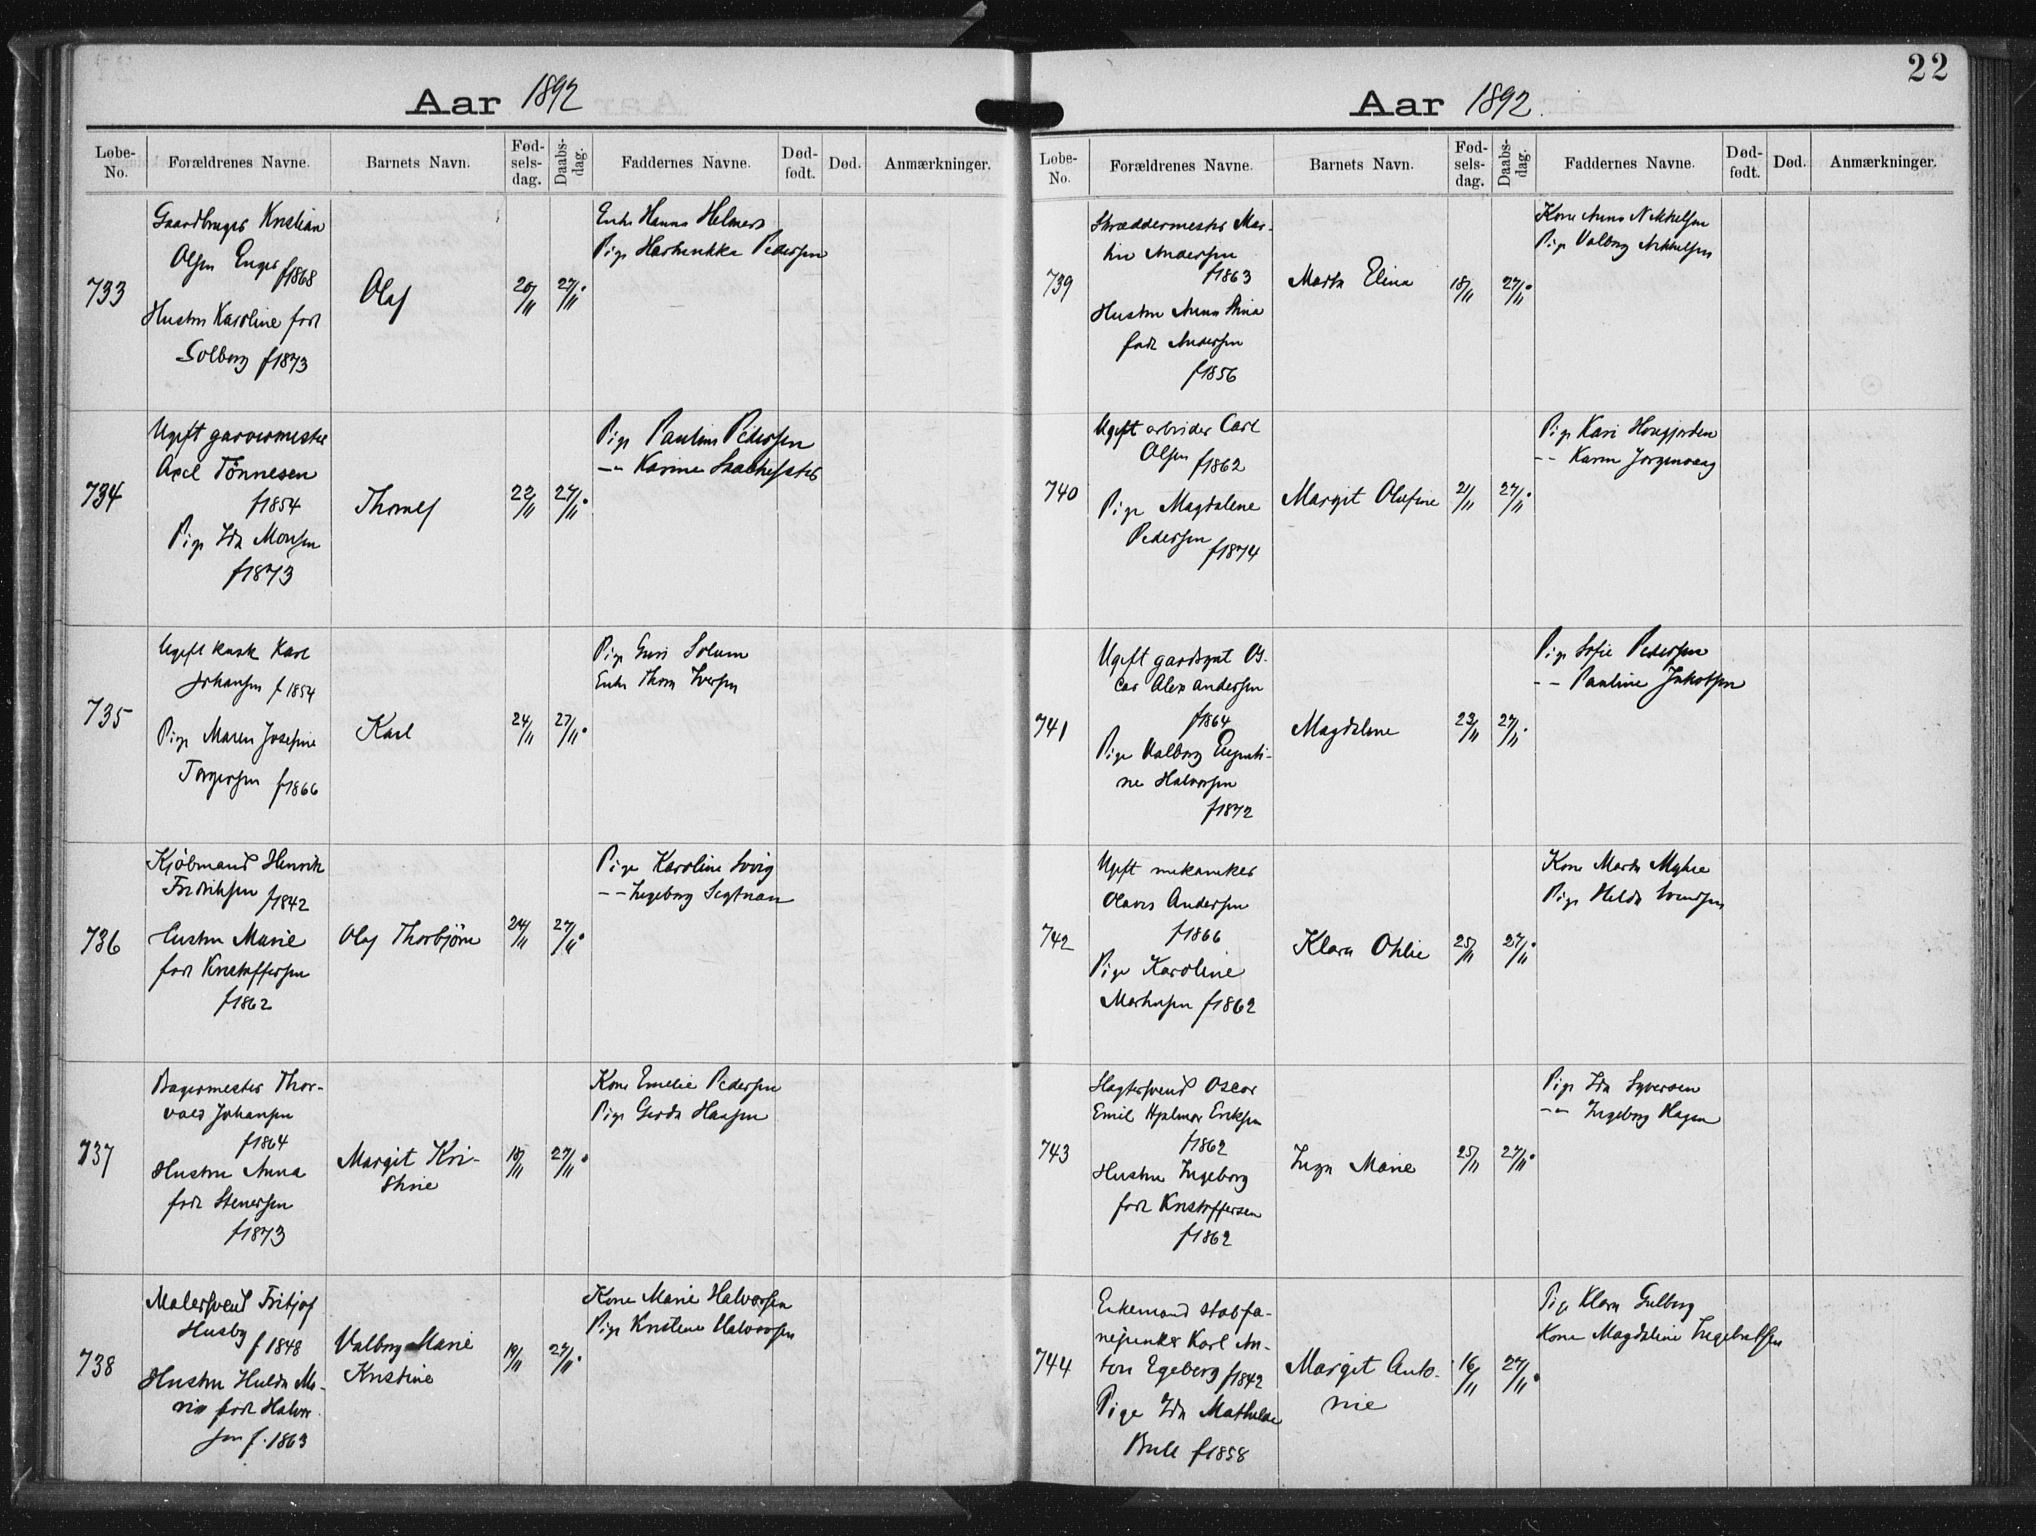 Aar 1892
Løbe-No. Forældrenes Navne. Barnets Navn. Fødselsdag. Daabsdag. Faddernes Navne. Dødfødt. Død. Anmærkninger.
733
Gaardbruger Kristian
Olsen Enger f1868
Hustru Karoline født
Solberg f1873
Olaf
20/11 27/11.
Enke Hanna Helmers
Pige Pedersen
734
Ugift garvermester
Axel Tönnesen
f1854
Pige Ida Monsen
f1873
Thorolf
22/11 27/11.
Pige Pauline Pedersen
-"- Karine
735
Ugift kusk Karl
Johansen f 1854
Pige Maren Josefine
Torgersen f1866
Karl
24/11 27/11.
Pige Guri Solum
Enke Thora Iversen
736
Kjöbmand Henrik
Fredriksen f1842
Hustru Marie
født Kristoffersen
f1862
Olaf Thorbjörn
24/11 27/11.
Pige Karoline
-- Ingeborg
737
Bagermester Thor-
vald Johansen
f1864
Hustru Anna
født Stenersen
f1873
Margit Kri-
stine
18/11 27/11.
Kone Emelie Pedersen
Pige Gerda Hansen
738
Malersvend Fritjof
Husby f 1848
Hustru Hulda Ma-
rie født Halvor-
sen f. 1863
Valborg Marie
Kristine
19/11 27/11.
Kone Marie Halvorsen
Pige Kristine Halvorsen
22
Aar 1892.
Løbe-No. Forældrenes Navne. Barnets Navn. Fødselsdag. Daabsdag. Faddernes Navne. Dødfødt. Død. Anmærkninger.
739
Skræddermester Mar-
tin Andersen
f1863
Hustru Anna Stina
født Andersen
f1856
Marta Elina
18/11 27/11.
Kone Anna Nikkelsen
Pige Valborg Nikkelsen
740
Ugift arbeider Carl
Olsen f1862
Pige Magdalene
Pedersen f1874
Margit Olufine
21/11 27/11.
Pige Kari
-- Karen
741
Ugift gardsgut Os-
car Alex Andersen
f1864
Pige Valborg
ne Halvorsen
f1872
Magdalene
23/11 27/11.
Pige Sofie Pedersen
-- Pauline Jakobsen
742
Ugift mekaniker
Olaves Andersen
f1866
Pige Karoline
Martinsen f1862
Klara Otilie
25/11 27/11.
Kone Marta Myhre
Pige Helda Svendsen
743
Slagtersvend Oscar
Emil Hjalmar Eriksen
f1862
Hustru Ingeborg
født Kristoffersen
f1862
Inga Marie
25/11 27/11.
Pige Ida Syversen
-"- Ingeborg Hagen
744
Enkemand stabfa-
nejunker Karl An-
ton Egeberg f1842
Pige Ida Mathilde
Bull f1858
Margit Anto-
nie
16/11 27/11.
Pige Klara Gulberg
Kone Magdaline Ingebretsen